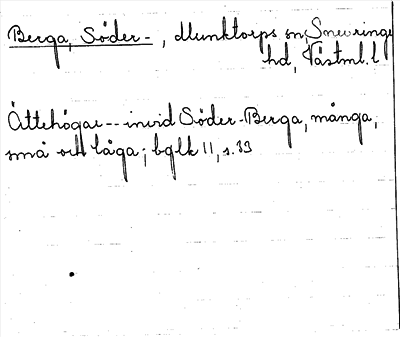 Berga, Söder-, Munktorps sn, Snevringe
hd, Västml. l
Ättehögar -- invid Söder-Berga, många,
små och låga; bglk 11, s. 33